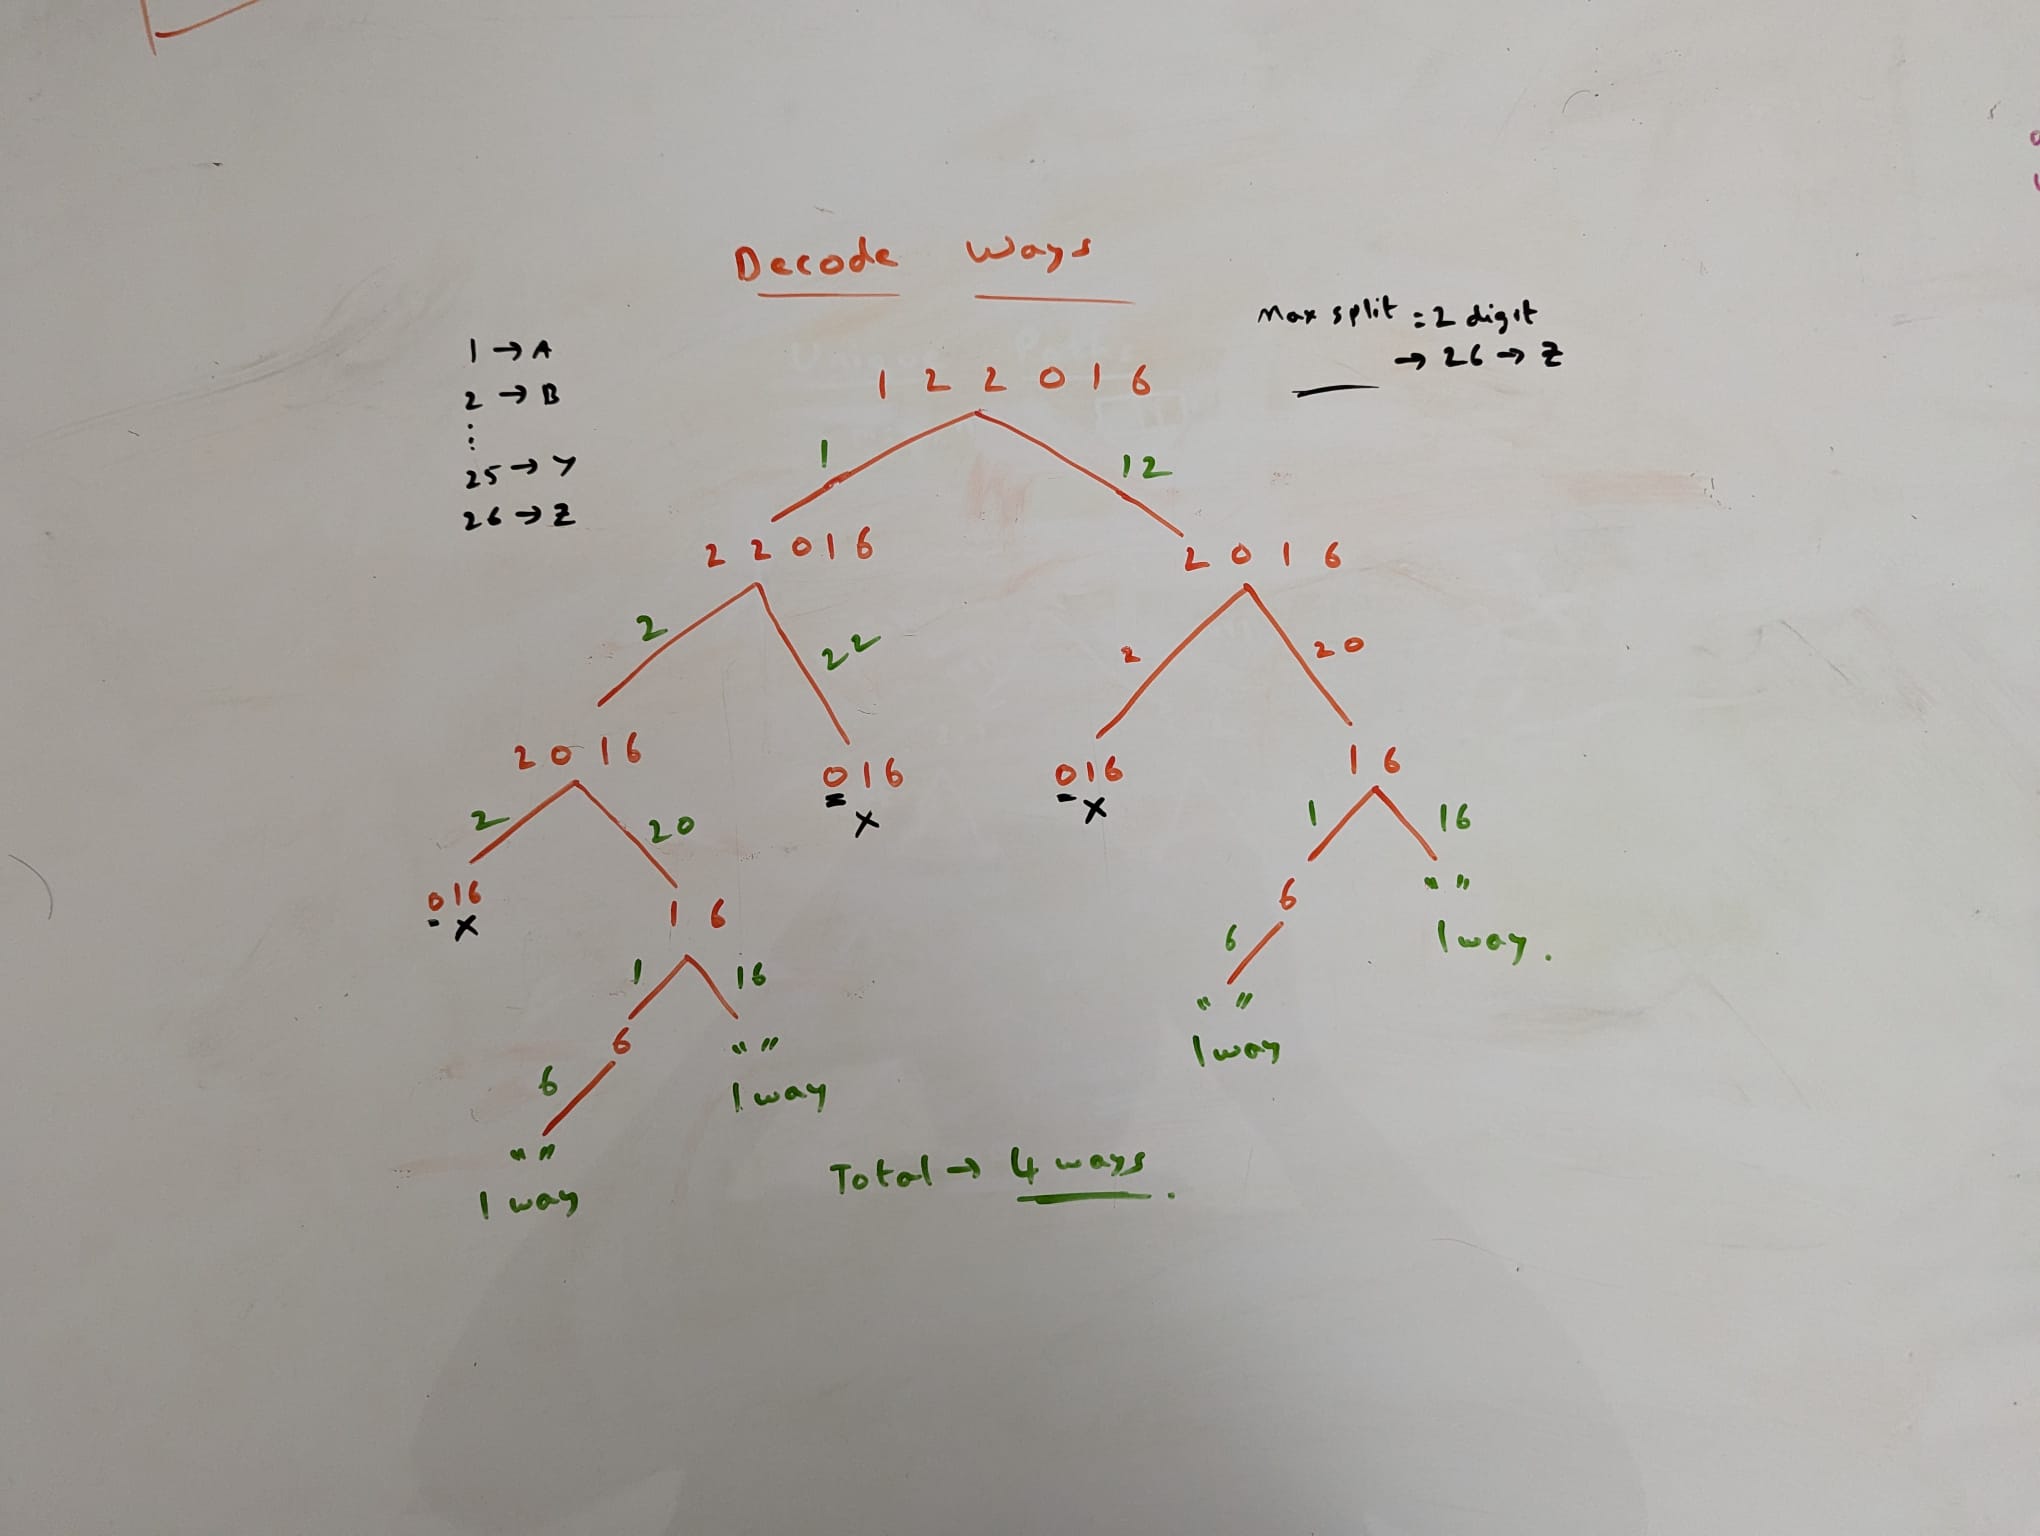 Decode Ways
Max split = 2 digit
→ 26 → Z
1 → A
2 → B
⋮
25 → Y
26 → Z
1 2 2 0 1 6
1 12
2 2 0 1 6 2 0 1 6
2 22 2 20
2 0 1 6 016 016 1 6
X X
2 20 1 16
016 1 6 6 " "
X 1 way.
1 16 6
6 " " " "
6 1 way 1 way
" "
1 way
Total → 4 ways.